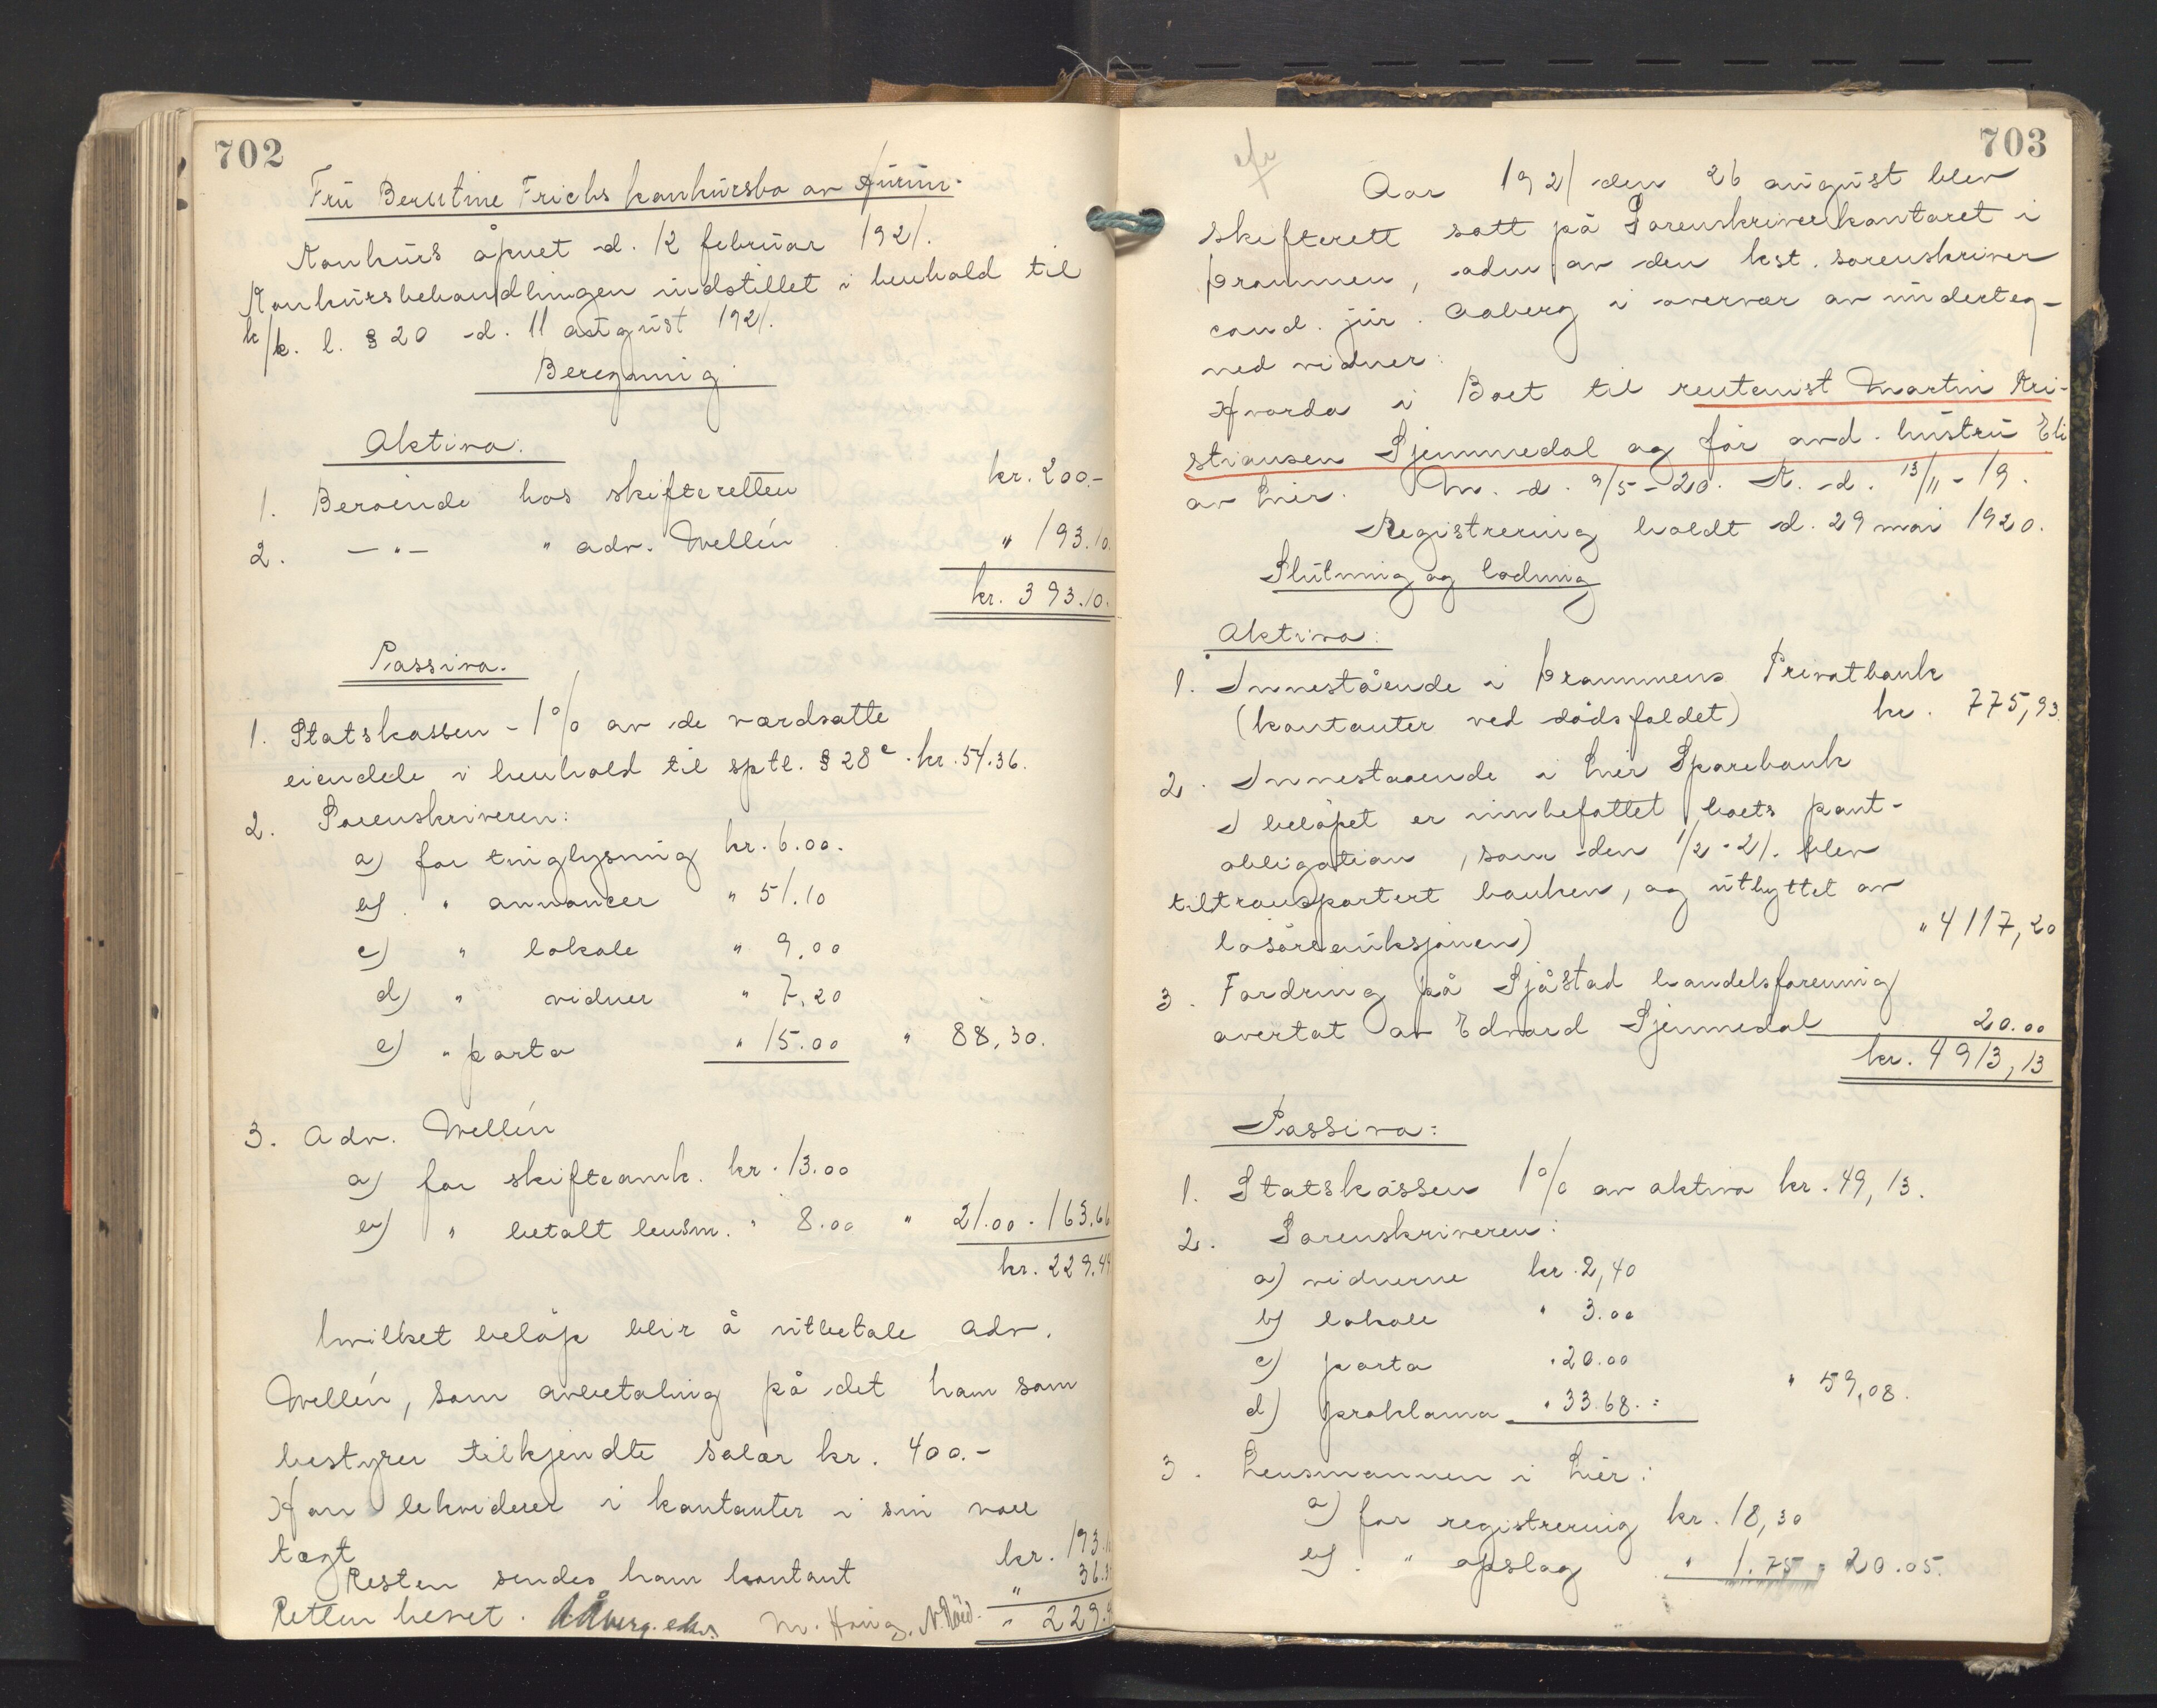 702
Frü Berntine Frichs konkürsbo av Hürüm.
Konkürs åpnet d. 12 februar 1921.
Konkürsbehandlingen indstillet i henhold til
k/k. l. § 20 d. 11 august 1921.
Beregning.
Aktiva:
1. Beroende hos skifteretten kr. 200.-
2. -"- " adv. Mellén " 193.10.
kr. 393.10.
Passiva.
1. Statskassen - 1% av de værdsatte
eiendele i henhold til sptl. § 28 c. kr. 54.36.
2. Sorenskriveren:
a) for tinglysning kr. 6.00.
b) " annoncer " 51.10
c) " lokale " 9.00
d) " vidner " 7.20
e) " porto " 15.00 " 88.30.
3. Adv. Mellén
a) for skifteamk. kr. 13.00
b) " betalt lensm. " 8.00 " 21.00 - 163.66
kr. 229.44
hvilket beløp blir å utbetale adv.
Mellén, som avbetaling på det ham som
bestyrer tilkjendte salær kr. 400.-
Han lekviderer i kontanter i sin vare
tægt kr. 193.10
Resten sendes ham kontant " 36.34
Retten hevet. Aåberg. M. Haug. N. Røed. " 229.44
703
Aar 1921 den 26 august blev
skifterett satt på Sorenskriverkontoret i
Drammen, adm av den kst. sorenskriver
cand. jur. Aaberg i overvær av underteg-
ned vidner:
Hvorda i Boet til rentenist Martin Kri-
stiansen Gjemmedal og før avd. hustru Eli
av Lier. M. d. 9/5-20. K. d. 13/11-19.
Registrering holdt d. 29 mai 1920.
Slutning og lodning
Aktiva:
1. Innestående i Drammens Privatbank
(kontanter ved dødsfaldet) kr. 775,93.
2. Innestaaende i Lier Sparebank
I beløpet er innbefattet boets pant-
obligation, som den 1/2-21. blev
tiltransportert banken, og utbyttet av
løsøreauksjonen) " 4117,20
3. Fordring på Sjåstad handelsforening
overtat av Edvard Gjemmedal 20.00
kr. 4913,13
Passiva:
1. Statskassen 1% av aktiva kr. 49,13.
2. Sorenskriveren:
a) vidnerne kr. 2,40
b) lokale " 3.00
c) porto " 20.00
d) proklama " 33.68. = " 59,08.
3. Lensmannen i Lier:
a) for registrering kr. 18,30
b) " opslag " 1.75 " 20.05.